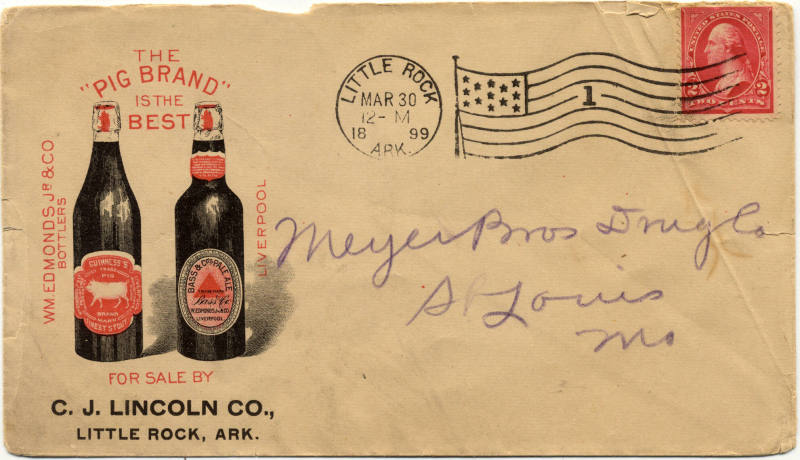 THE
"PIG BRAND"
IS THE
BEST
WM. EDMONDS, JR & CO
BOTTLERS
LIVERPOOL
GUINNESS'S
PIG
BRAND
FINEST STOUT
BASS & CO'S PALE ALE
Bass & Co
W. EDMONDS JR & CO.
LIVERPOOL
FOR SALE BY
C. J. LINCOLN CO.,
LITTLE ROCK, ARK.
LITTLE ROCK
MAR 30
12- M
18 99
ARK.
1
UNITED STATES POSTAGE
2 2
TWO CENTS
Meyer Bros Drug Co
St Louis
Mo